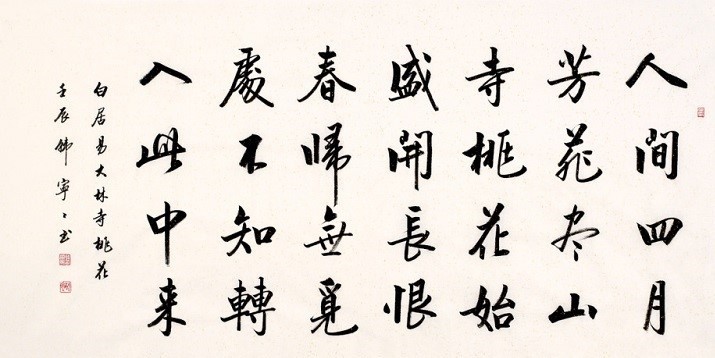 人間四月
芳菲尽山
寺桃花始
盛開長恨
春歸無覓
處不知轉
入此中来
白居易大林寺桃花
壬辰韩寧〻书